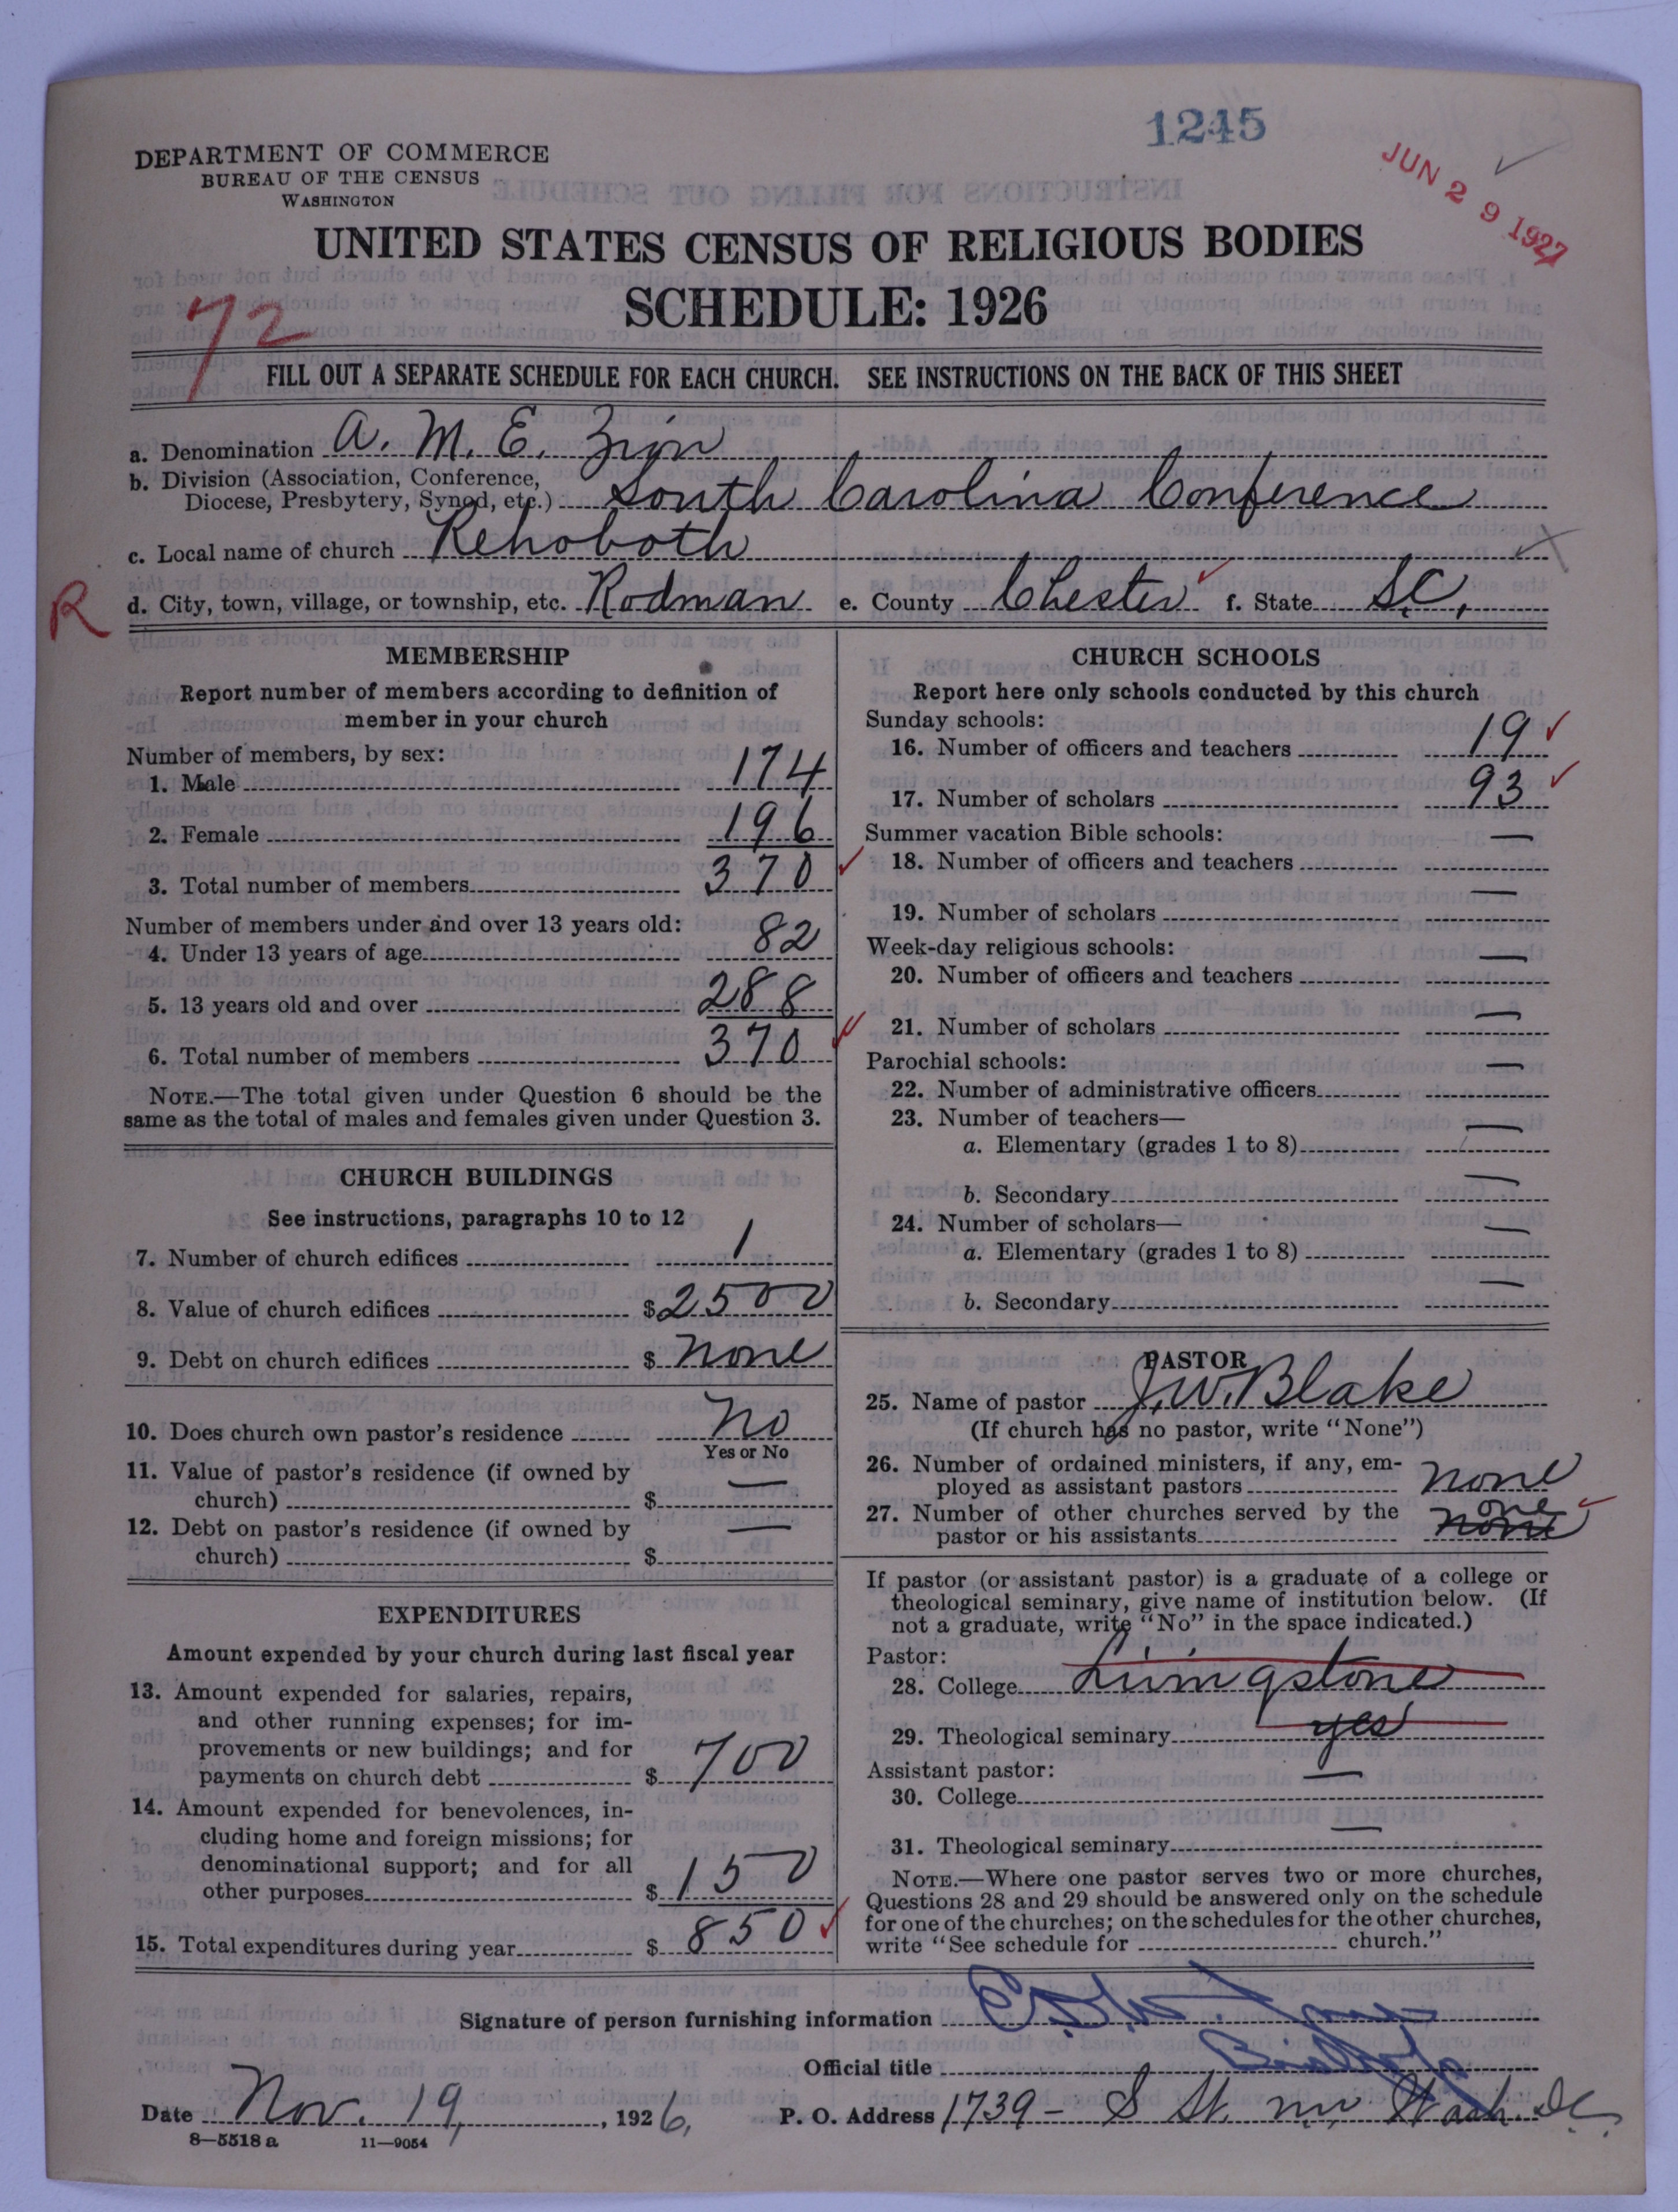 1245
JUN 29 1927
DEPARTMENT OF COMMERCE
BUREAU OF THE CENSUS
WASHINGTON
UNITED STATES CENSUS OF RELIGIOUS BODIES
SCHEDULE: 1926
72
FILL OUT A SEPARATE SCHEDULE FOR EACH CHURCH. SEE INSTRUCTIONS ON THE BACK OF THIS SHEET
a. Denomination A. M. E. Zion
b. Division (Association, Conference,
Diocese, Presbytery, Synod, etc.) South Carolina Conference
c. Local name of church Rehoboth
R
d. City, town, village, or township, etc. Rodman e. County Chester f. State S.C.
MEMBERSHIP
Report number of members according to definition of
member in your church
Number of members, by sex:
1. Male 174
2. Female 196
3. Total number of members 370
Number of members under and over 13 years old:
4. Under 13 years of age 82
5. 13 years old and over 288
6. Total number of members 370
NOTE.—The total given under Question 6 should be the
same as the total of males and females given under Question 3.
CHURCH BUILDINGS
See instructions, paragraphs 10 to 12
7. Number of church edifices 1
8. Value of church edifices $2500
9. Debt on church edifices $ None
10. Does church own pastor's residence No
Yes or No
11. Value of pastor's residence (if owned by
church) $ —
12. Debt on pastor's residence (if owned by
church) $ —
EXPENDITURES
Amount expended by your church during last fiscal year
13. Amount expended for salaries, repairs,
and other running expenses; for im-
provements or new buildings; and for
payments on church debt $ 700
14. Amount expended for benevolences, in-
cluding home and foreign missions; for
denominational support; and for all
other purposes $ 150
15. Total expenditures during year $ 850
CHURCH SCHOOLS
Report here only schools conducted by this church
Sunday schools:
16. Number of officers and teachers 19
17. Number of scholars 93
Summer vacation Bible schools:
18. Number of officers and teachers —
19. Number of scholars —
Week-day religious schools:
20. Number of officers and teachers —
21. Number of scholars —
Parochial schools:
22. Number of administrative officers —
23. Number of teachers—
a. Elementary (grades 1 to 8) —
b. Secondary —
24. Number of scholars—
a. Elementary (grades 1 to 8) —
b. Secondary —
PASTOR
25. Name of pastor J. W. Blake
(If church has no pastor, write "None")
26. Number of ordained ministers, if any, em-
ployed as assistant pastors none
27. Number of other churches served by the
pastor or his assistants none one
If pastor (or assistant pastor) is a graduate of a college or
theological seminary, give name of institution below. (If
not a graduate, write "No" in the space indicated.)
Pastor:
28. College Livingstone
29. Theological seminary yes
Assistant pastor:
30. College —
31. Theological seminary —
NOTE.—Where one pastor serves two or more churches,
Questions 28 and 29 should be answered only on the schedule
for one of the churches; on the schedules for the other churches,
write "See schedule for church."
Signature of person furnishing information
Official title
Date Nov. 19, 1926, P. O. Address 1739 - S St. nw Wash. DC.
8—5518 a 11—9054